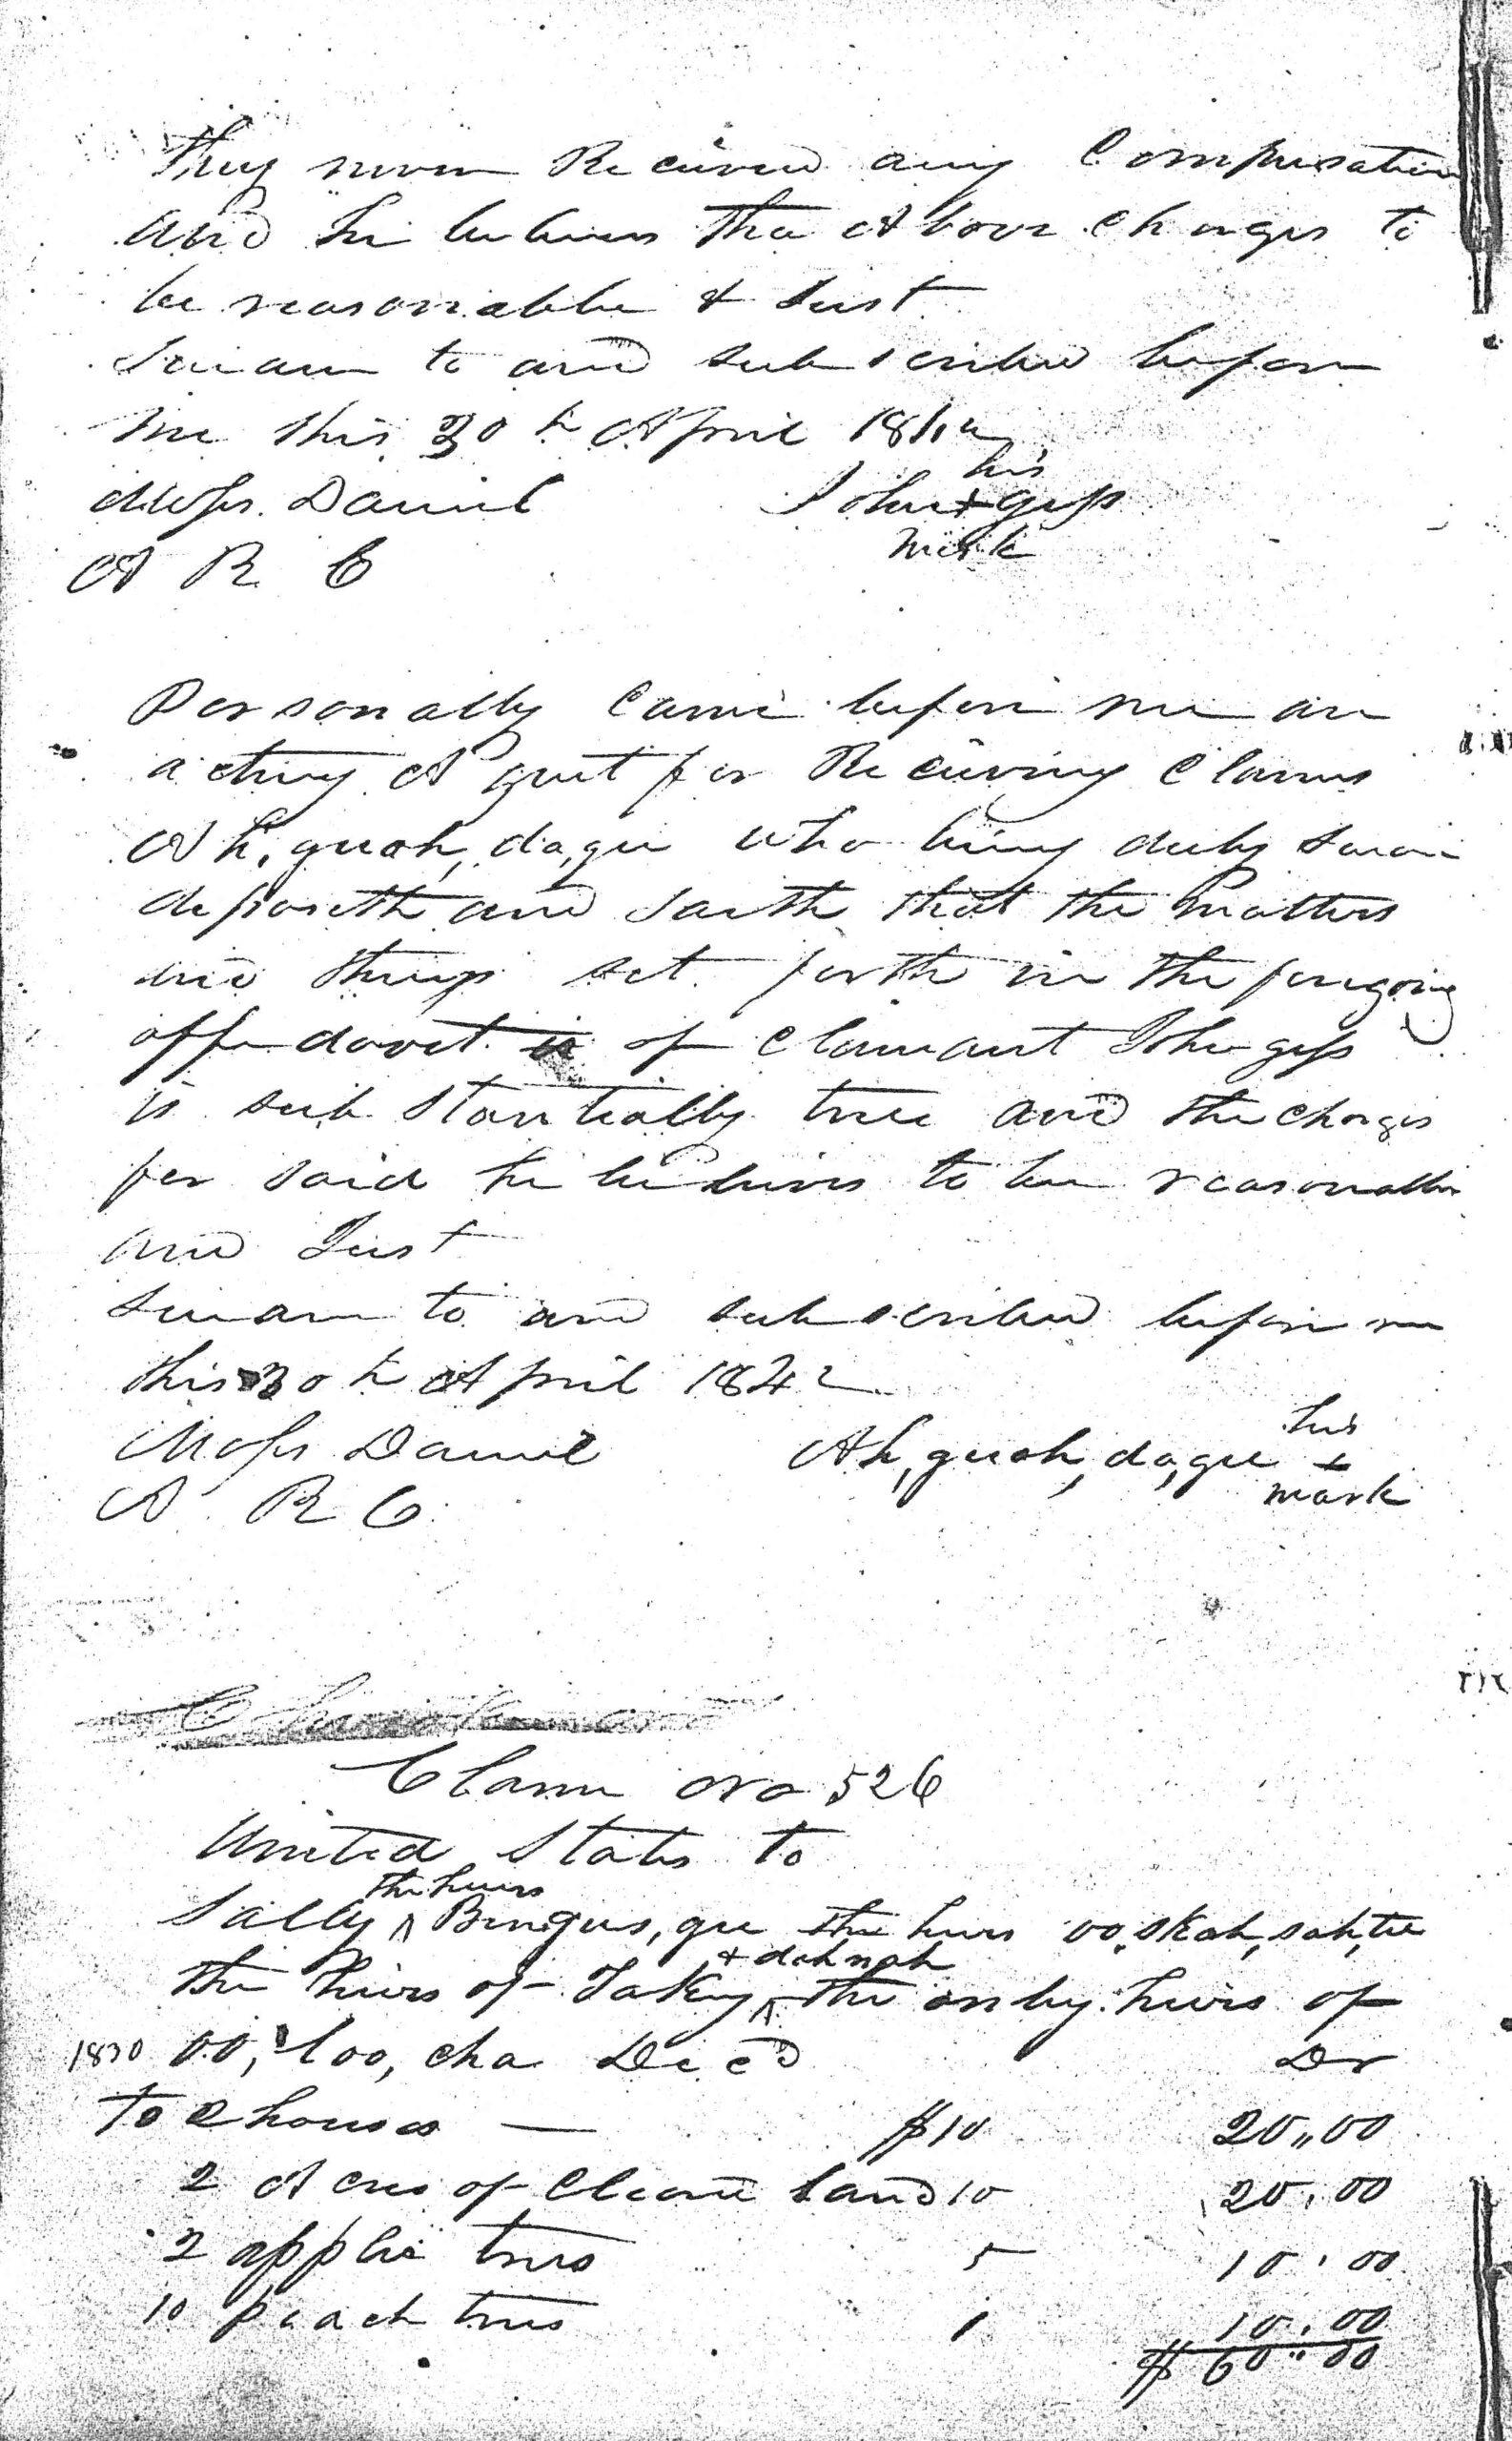 They never Received any Compensation
and he believes the Above Charges to
be reasonable & Just
Swarn to and subscribed before
me this 30th April 1842
Moses Daniel John his + gess mark
A R C
Personally came before me an
acting Agent for Receiving Claims
Ah,quah,da,gee who being duly sworn
deposeth and saith that the matters
and things set forth in the foregoing
affedavet of Claimant John gess
is substantially true and the charges
for said he believes to be reasonable
and Just
Swarn to and subscribed before me
this 30th April 1842
Moses Daniel Ah,quah,da,gee his + mark
A R C
Claim No 526
United States to
Sally the heirs Benges,gee the heirs oo,skah,sah,tee
the heirs of Takey & dahnah the only heirs of
1830 oo,loo,cha Decd Dr
To 2 houses — $10 20,,00
2 Acres of Cleared land 10 20,00
2 apple trees 5 10,00
10 peach trees 1 10,00
$60,,00